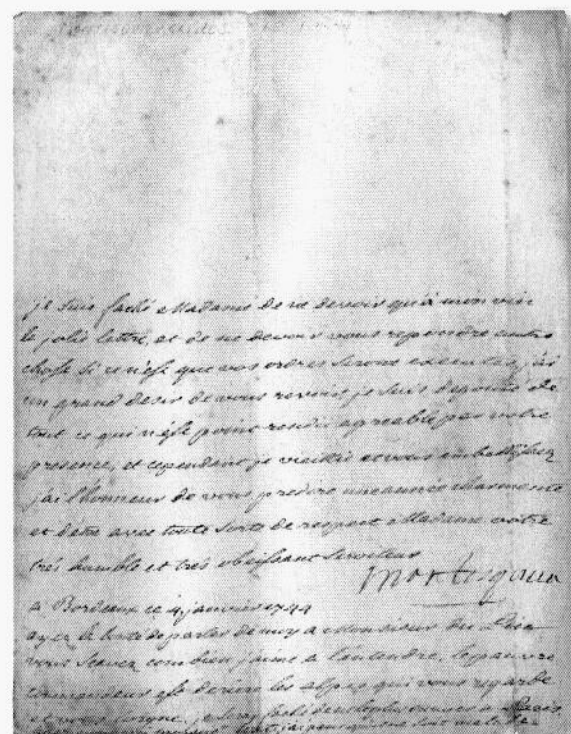 je suis faché Madame de ne devoir qu'à mon vin
la jolie lettre, et de ne devoir vous reprendre autre
chose si ce n'est que vos ordres serons executez, j'ai
un grand desir de vous revoir, je suis degouté de
tout ce qui n'est point rendu agreable par votre
presence, et cependant je vieillis et vous embellissez
j'ai l'honneur de vous predire une année charmante
et detre avec toute sorte de respect Madame votre
tres humble et tres obeissant serviteur
Montesquieu
a Bordeaux ce 4 janvier 1744
ayez la bonté de parler de moy a Monsieur du
vous scavez combien j'aime a l'entendre, le pauvre
commandeur est deriere les alpes qui vous regarde
et vous lorgne, je serai faché